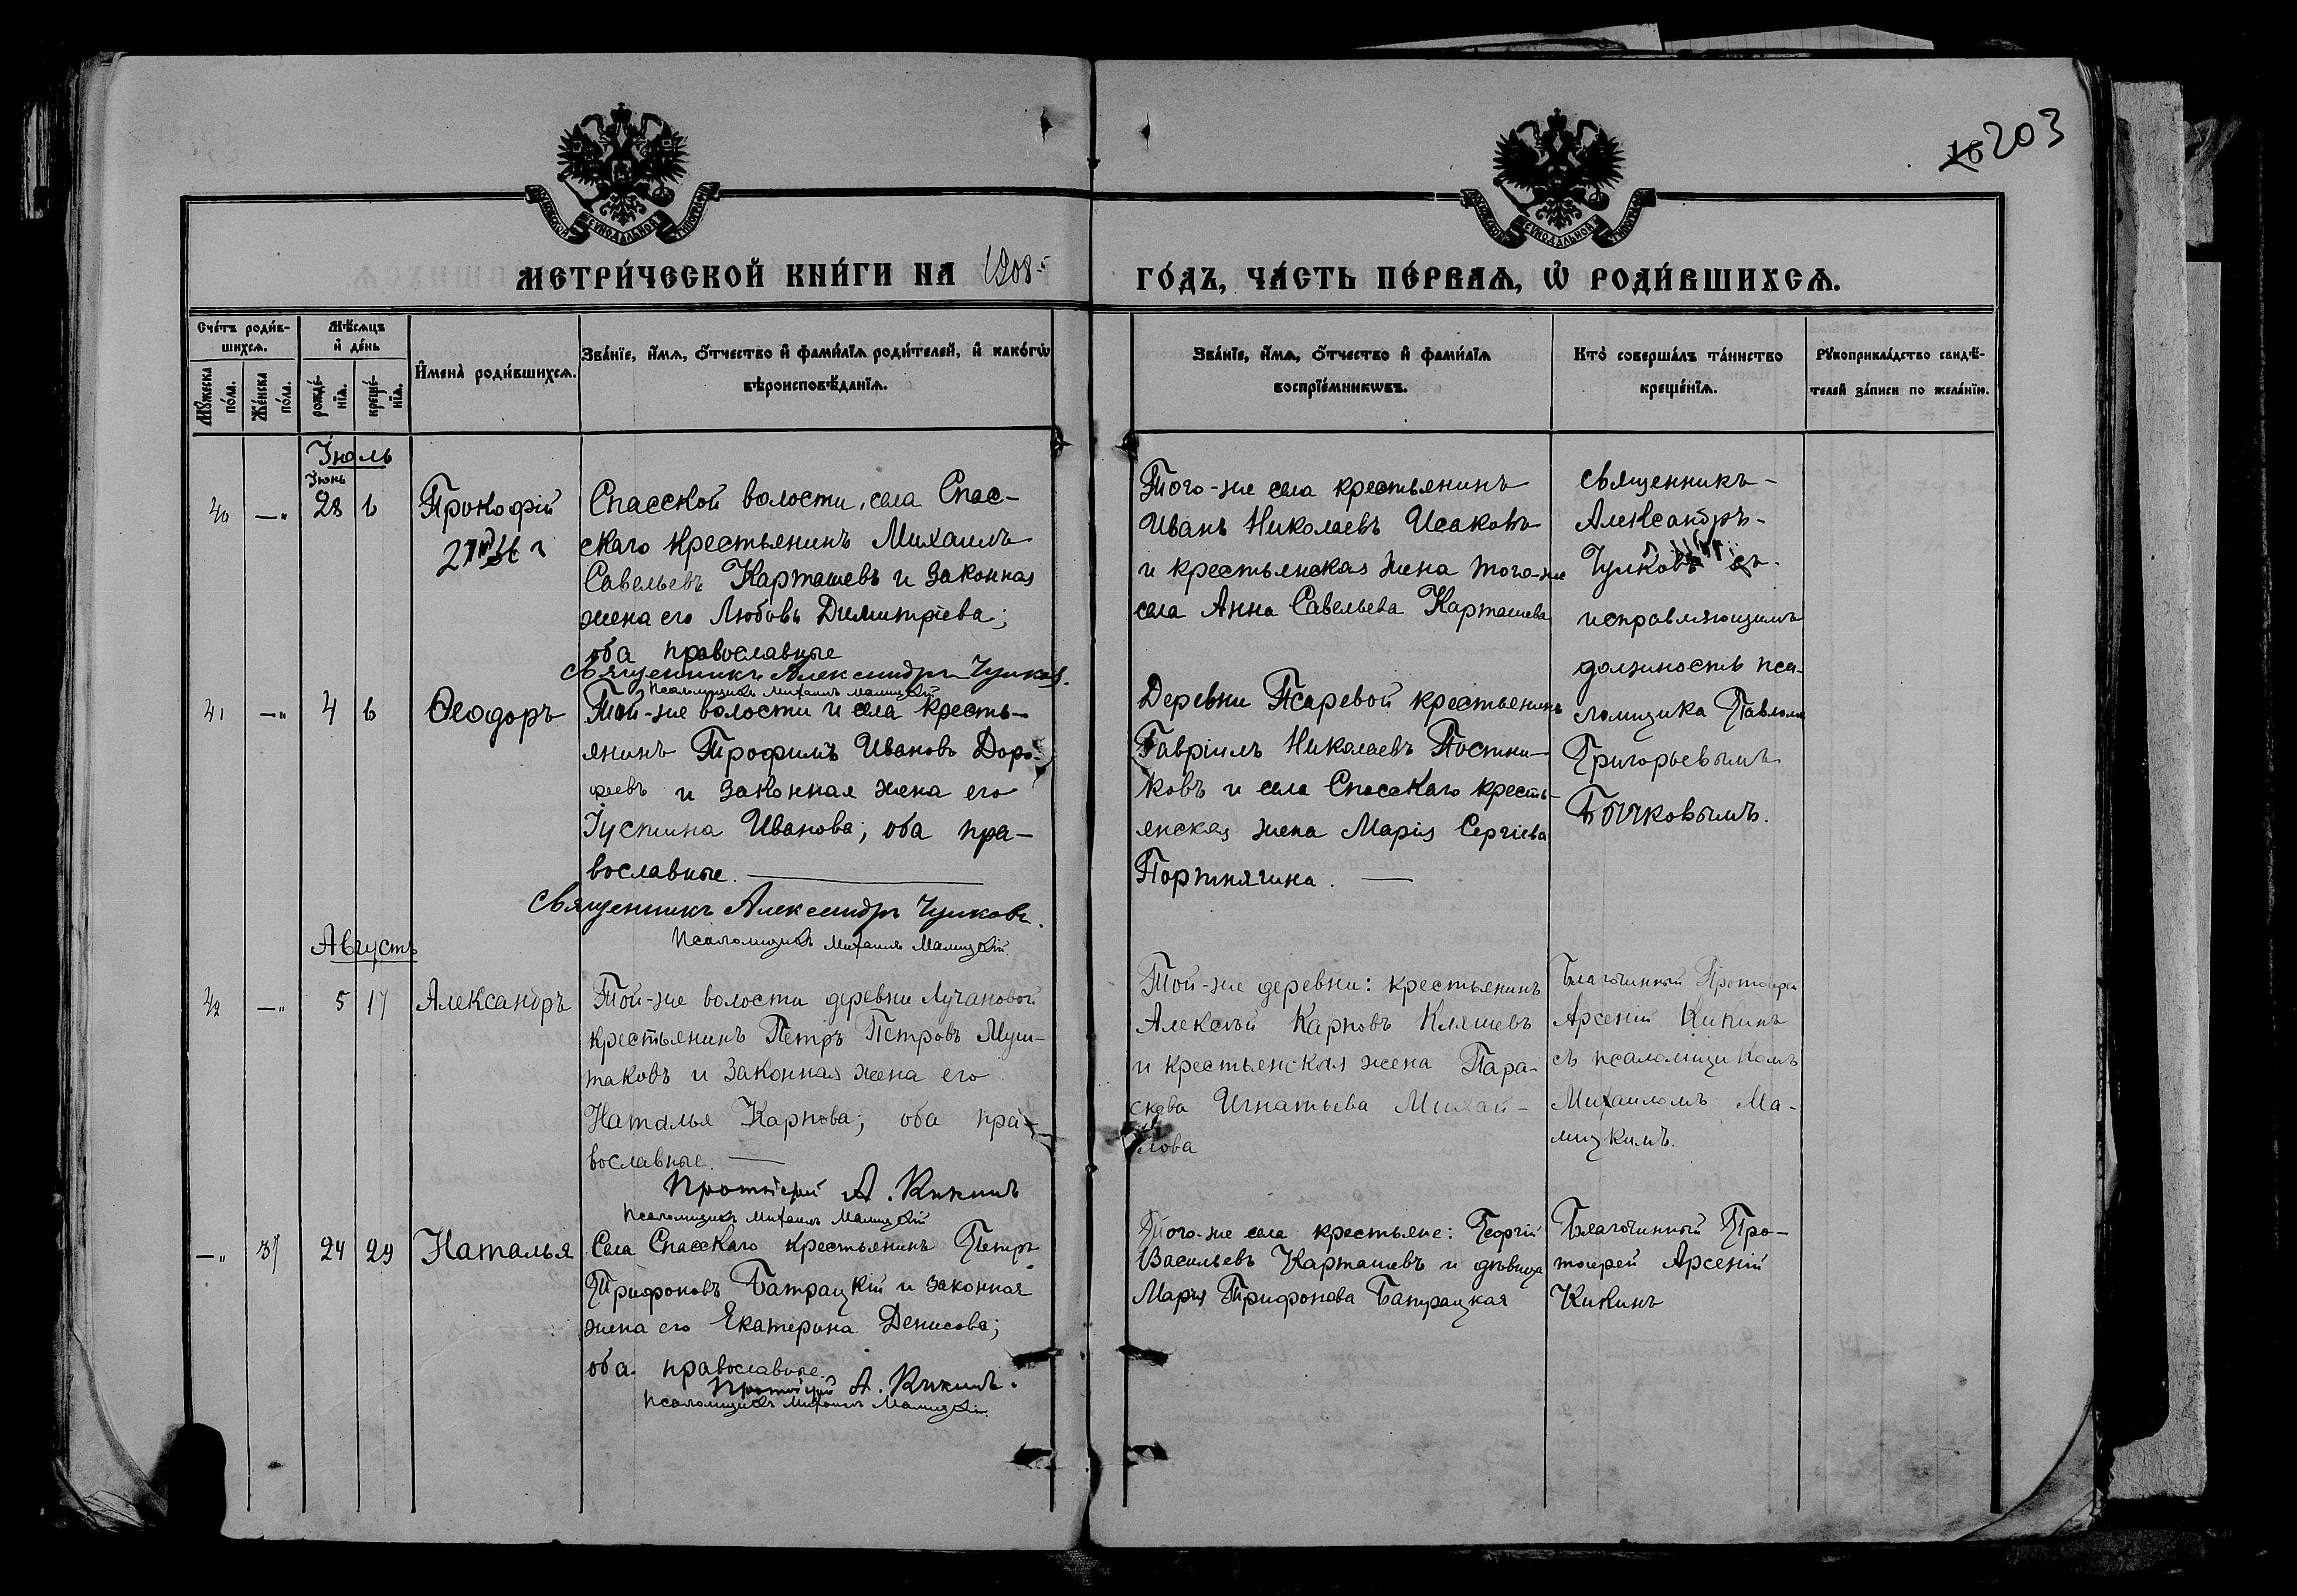 203
МЕТРИ́ЧЕСКОЙ КНИ́ГИ НА 1908
ГО́ДЪ, ЧА́СТЬ ПЕ́РВАѦ, Ѡ҆ РОДИ́ВШИХСѦ.
Сче́тъ роди́в-
шихсѧ.
Мѣ́сѧцъ
и҆ де́нь
И҆мена̀ роди́вшихсѧ.
Зва́нїе, и҆́мѧ, о҆́тчество и҆ фами́лїѧ роди́телей, и҆ како́гѡ
вѣроисповѣ́данїѧ.
Мꙋ́жеска
по́ла.
Же́нска
по́ла.
рожде́-
нїѧ.
креще́-
нїѧ.
Зва́нїе, и҆́мѧ, о҆́тчество и҆ фами́лїѧ
воспрїе́мникѡвъ.
Кто̀ соверша́лъ та́инство
креще́нїѧ.
Рꙋкоприкла́дство свидѣ́-
телей за́писи по жела́нїю.
Іюль
Іюнь
40 —„ 28 6 Прокофій
Спасской волости, села Спас-
скаго крестьянинъ Михаилъ
Савельевъ Карташевъ и законная
жена его Любовь Димитріева;
оба православные
Священникъ Александръ Чулковъ.
Псаломщикъ Михаилъ Малицкій
Того-же села крестьянинъ
Иванъ Николаевъ Исаковъ
и крестьянская жена того-же
села Анна Савельева Карташева
священникъ-
Александръ-
Чулковъ съ
исправляющимъ
должность пса-
ломщика Павломъ
Григорьевымъ
Бычковымъ.
41 —„ 4 6 Ѳеодоръ
Той-же волости и села кресть-
янинъ Трофимъ Ивановъ Доро-
феевъ и законная жена его
Іустина Иванова; оба пра-
вославные.
Священникъ Александръ Чулковъ.
Псаломщикъ Михаилъ Малицкій
Деревни Псаревой крестьянинъ
Гавріилъ Николаевъ Постни-
ковъ и села Спасскаго кресть-
янская жена Марія Сергіева
Портнягина.
Августъ
42 —„ 5 17 Александръ
Той-же волости деревни Лучановой
крестьянинъ Петръ Петровъ Муш-
таковъ и законная жена его
Наталья Карпова; оба пра-
вославные.
Протоіерей А. Кикинъ
Псаломщикъ Михаилъ Малицкій
Той-же деревни: крестьянинъ
Алексѣй Карповъ Кляшевъ
и крестьянская жена Пара-
скева Игнатьева Михай-
лова
Благочинный Протоіерей
Арсеній Кикинъ
съ псаломщикомъ
Михаиломъ Ма-
лицкимъ.
—„ 37 24 29 Наталья
Села Спасскаго крестьянинъ Петръ
Трифоновъ Батрацкій и законная
жена его Екатерина Денисова;
оба православные.
Протоіерей А. Кикинъ.
Псаломщикъ Михаилъ Малицкій
Того-же села крестьяне: Георгій
Васильевъ Карташевъ и дѣвица
Марія Трифонова Батрацкая
Благочинный Про-
тоіерей Арсеній
Кикинъ